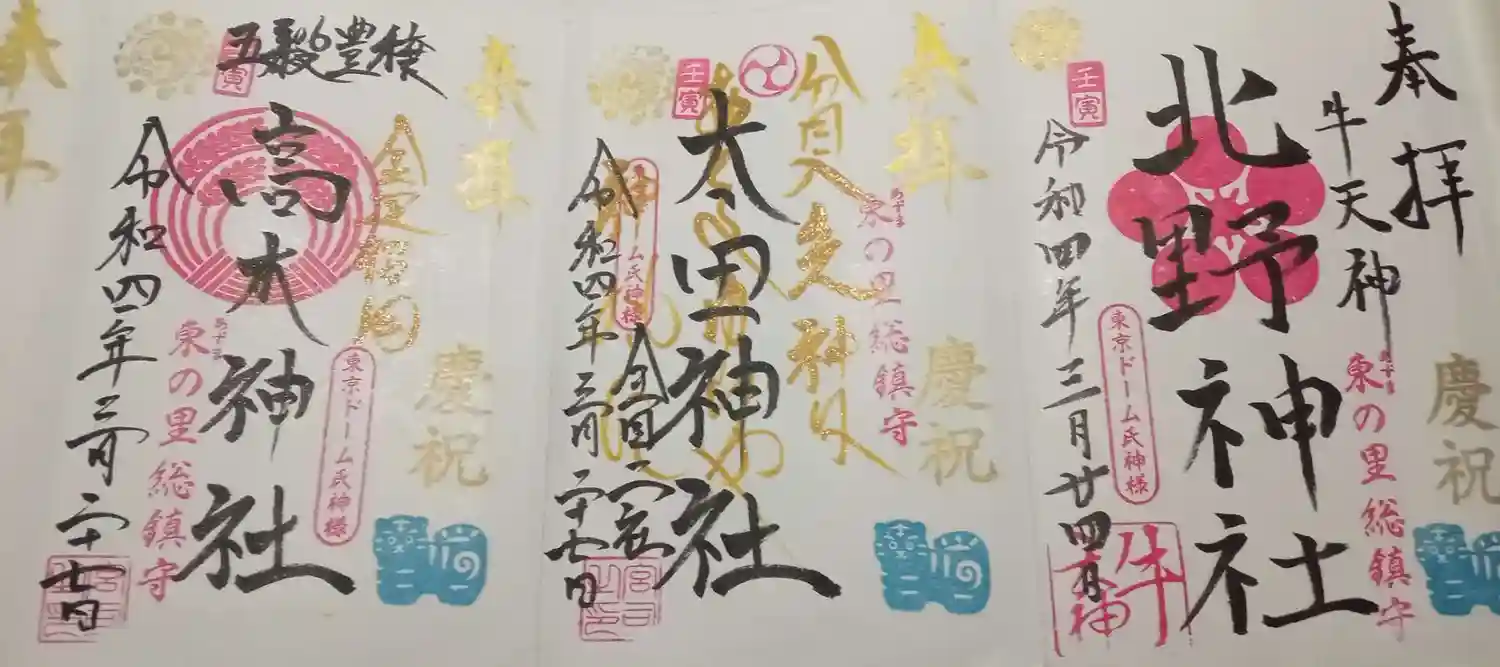 奉拝
牛天神
北野神社
壬寅
令和四年三月廿四日
東京ドーム氏神様
あずま
東の里総鎮守
慶祝
牛天神
奉拝
貧乏神
太田神社
壬寅
令和四年三月二十七日
東京ドーム氏神様
あずま
東の里総鎮守
慶祝
宮司之印
奉拝
五穀豊穣
高木神社
壬寅
令和四年三月二十七日
東京ドーム氏神様
あずま
東の里総鎮守
慶祝
宮司之印
奉拝